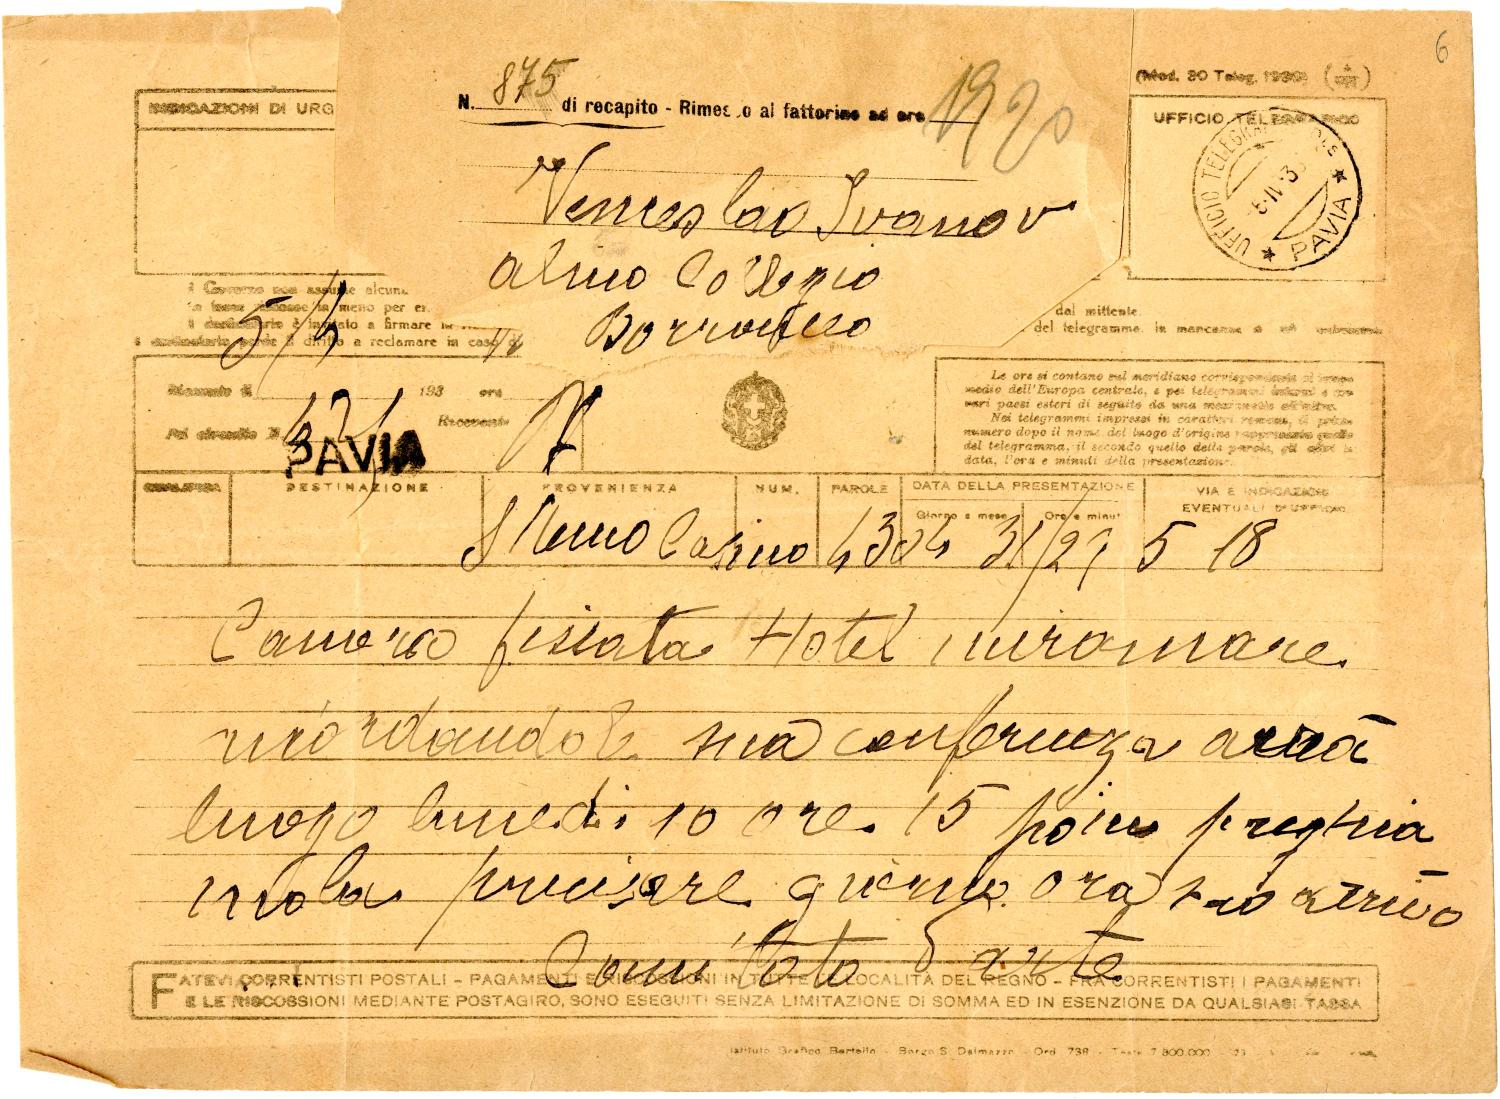 6
(Mod. 30 Teleg. 1930)
N. 875 di recapito - Rimesso al fattorino ad ore 19 20
INDICAZIONI DI URG
UFFICIO TELEGRAFICO
UFFICIO TELEGRA
PAVIA
Venceslao Ivanov
almo Collegio
Borromeo
Il Governo non assume alcuna
dal mittente.
del telegramma, in mancanza
è invitato a firmare la
perde il diritto a reclamare in caso
5/4
Ricevuto il 193 ore
Pel circuito N. Ricevente
PAVIA
Le ore si contano sul meridiano corrispondente al tempo
medio dell'Europa centrale, e pei telegrammi interni e con
vari paesi esteri di seguito da una mezzanotte all'altra.
Nei telegrammi impressi in caratteri romani, il primo
numero dopo il nome del luogo d'origine rappresenta quello
del telegramma, il secondo quello delle parole, gli altri la
data, l'ora e minuti della presentazione.
QUALIFICA DESTINAZIONE PROVENIENZA NUM. PAROLE DATA DELLA PRESENTAZIONE VIA E INDICAZIONI
Giorno e mese Ore e minuti EVENTUALI D'UFFICIO
S Remo Casino 4304 31/29 5 18
Camera fissata Hotel miramare
ricordandole sua conferenza avrà
luogo lunedi 10 ore 15 poim preghia
mola precisare giorno ora suo arrivo
Comitato Dante
FATEVI CORRENTISTI POSTALI - PAGAMENTI E RISCOSSIONI IN TUTTE LE LOCALITÀ DEL REGNO - FRA CORRENTISTI I PAGAMENTI
E LE RISCOSSIONI MEDIANTE POSTAGIRO, SONO ESEGUITI SENZA LIMITAZIONE DI SOMMA ED IN ESENZIONE DA QUALSIASI TASSA
Istituto Grafico Bertello - Borgo S. Dalmazzo - Ord. 738 - Teste 7.800.000